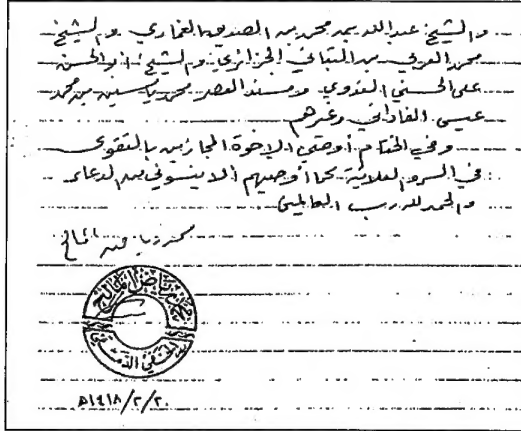 والشيخ عبدالله بن محمد بن الصديق الغماري والشيخ
محمد العربي بن التباني الجزائري والشيخ أبو الحسن
علي الحسني الندوي ومسند العصر محمد ياسين بن محمد
عيسى الفاداني وغيرهم
وفي الختام أوصي الإخوة المجازين بالتقوى
في السر والعلانية كما أوصيهم ألا ينسوني من الدعاء
والحمد لله رب العالمين
محمد رياض المالح
محمد رياض المالح
الحنفي الدمشقي
١٤١٨/٢/٢٠هـ